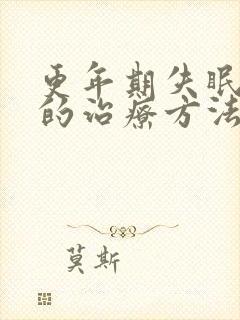 更年期失眠
的治疗方法
莫斯